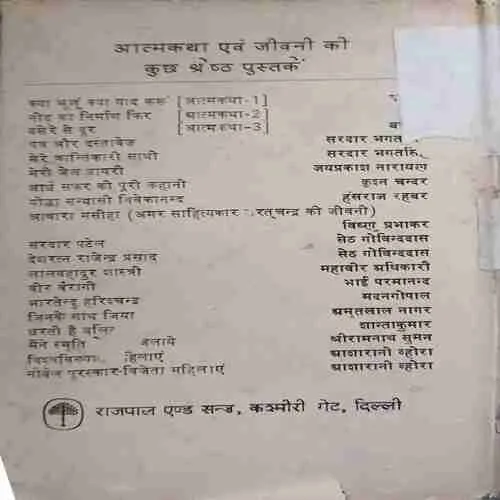 आत्मकथा एवं जीवनी की
कुछ श्रेष्ठ पुस्तकें
क्या भूलूं क्या याद करूं [आत्मकथा-1]
नीड़ का निर्माण फिर [आत्मकथा-2]
बसेरे से दूर [आत्मकथा-3]
पत्र और दस्तावेज़ सरदार भगत
मेरे क्रान्तिकारी साथी सरदार भगतसिं
मेरी जेल डायरी जयप्रकाश नारायण
आधे सफर की पूरी कहानी कृश्न चन्दर
योद्धा सन्यासी विवेकानन्द हंसराज रहबर
आवारा मसीहा (अमर साहित्यकार रत्चन्द्र की जीवनी)
विष्णु प्रभाकर
सरदार पटेल सेठ गोविन्ददास
देशरत्न राजेन्द्र प्रसाद सेठ गोविन्ददास
लालबहादुर शास्त्री महावीर अधिकारी
वीर बैरागी भाई परमानन्द
भारतेन्दु हरिश्चन्द्र मदनगोपाल
जिनके साथ जिया अमृतलाल नागर
धरती है शान्ताकुमार
मैंने स्मृति जलाये श्रीरामनाथ सुमन
हिलाएं आशारानी व्होरा
नोबेल पुरस्कार-विजेता महिलाएं आशारानी व्होरा
राजपाल एण्ड सन्ज़, कश्मीरी गेट, दिल्ली